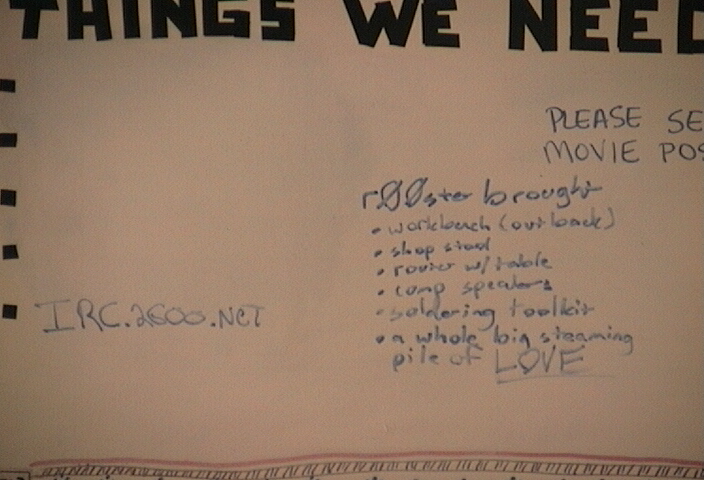 THINGS WE NEED
PLEASE SE
MOVIE POS
rØØster brought
• workbench (out back)
• shop stool
• router w/table
• comp speakers
• soldering toolkit
• a whole big steaming
pile of LOVE
IRC.2600.NET